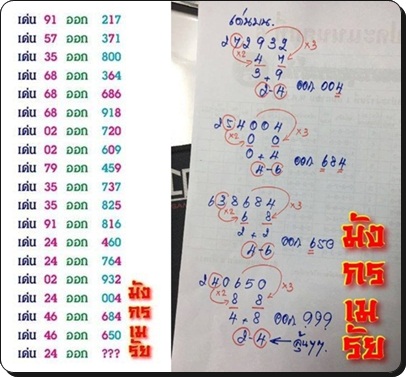 เด่น 91 ออก 217
เด่น 57 ออก 371
เด่น 35 ออก 800
เด่น 68 ออก 364
เด่น 68 ออก 686
เด่น 68 ออก 918
เด่น 02 ออก 720
เด่น 02 ออก 609
เด่น 79 ออก 459
เด่น 35 ออก 737
เด่น 35 ออก 825
เด่น 91 ออก 816
เด่น 24 ออก 460
เด่น 24 ออก 764
เด่น 02 ออก 932
เด่น 24 ออก 004
เด่น 46 ออก 684
เด่น 46 ออก 650
เด่น 24 ออก ???
มัง
กร
เม
รัย
เด่นบน.
272932
×2 ×3
4 7
3+9
2-4 ออก 004
254004
×2 ×3
0 0
0+4
4-6 ออก 684
638684
×2 ×3
6 8
2+2
4-6 ออก 650
240650
×2 ×3
8 8
4+8 ออก ???
2-4
มัง
กร
เม
รัย